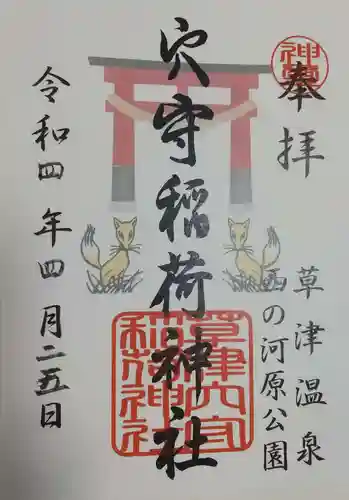 奉拝
草津温泉
西の河原公園
穴守稲荷神社
草津穴守稲荷神社
令和四年四月二五日